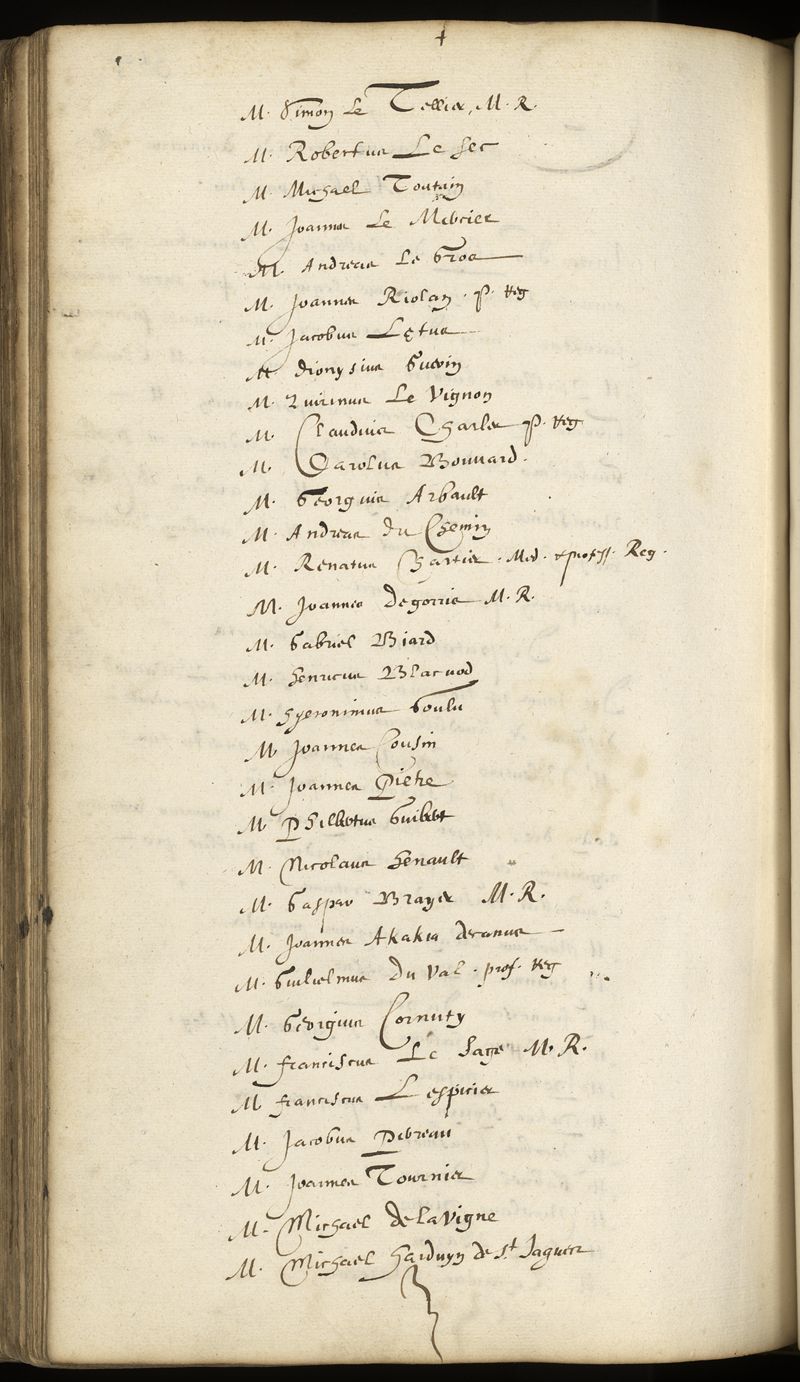 M. Simon Le Tellier, M. R.
M. Robertus Le Sec
M. Michael Toutain
M. Joannes Le Mercier
M. Andreas Le Gros
M. Joannes Riolan. P. Reg
M. Jacobus Lętus
M. Dionysius Guerin
M. Quirinus Le Vignon
M. Claudius Charles P. Reg
M. Carolus Bouvard.
M. Georgius Arbault
M. Andreas du Chemin
M. Renatus Chartier. Med. & profess. Reg.
M. Joannes Degorris M. R.
M. Gabriel Biard
M. Henricus Blacuod
M. Hyeronimus Goulu
M. Joannes Cousin
M. Joannes Pietre
M. Philbertus Guibert
M. Nicolaus Henault
M. Gaspar Brayer M. R.
M. Joannes Akakia decanus
M. Guilielmus Du Val. prof. Reg
M. Georgius Cornuty
M. Franciscus Le Sage M. R.
M. Franciscus Lespicier
M. Jacobus Perreau
M. Joannes Tournier
M. Michael de la Vigne
M. Michael Harduyn de St. Jaques